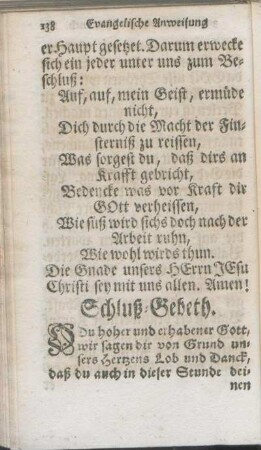 138 Evangelische Anweisung
er Haupt gesetzet. Darum erwecke
sich ein jeder unter uns zum Be-
schluß:
Auf, auf, mein Geist, ermüde
nicht,
Dich durch die Macht der Fin-
sterniß zu reissen,
Was sorgest du, daß dirs an
Krafft gebricht,
Bedencke was vor Kraft dir
GOtt verheissen,
Wie süß wird sichs doch nach der
Arbeit ruhn,
Wie wohl wirds thun.
Die Gnade unsers HErrn JEsu
Christi sey mit uns allen. Amen!
Schluß-Gebeth.
DU hoher und erhabener Gott,
wir sagen dir von Grund un-
sers Hertzens Lob und Danck,
daß du auch in dieser Stunde dei-
nen